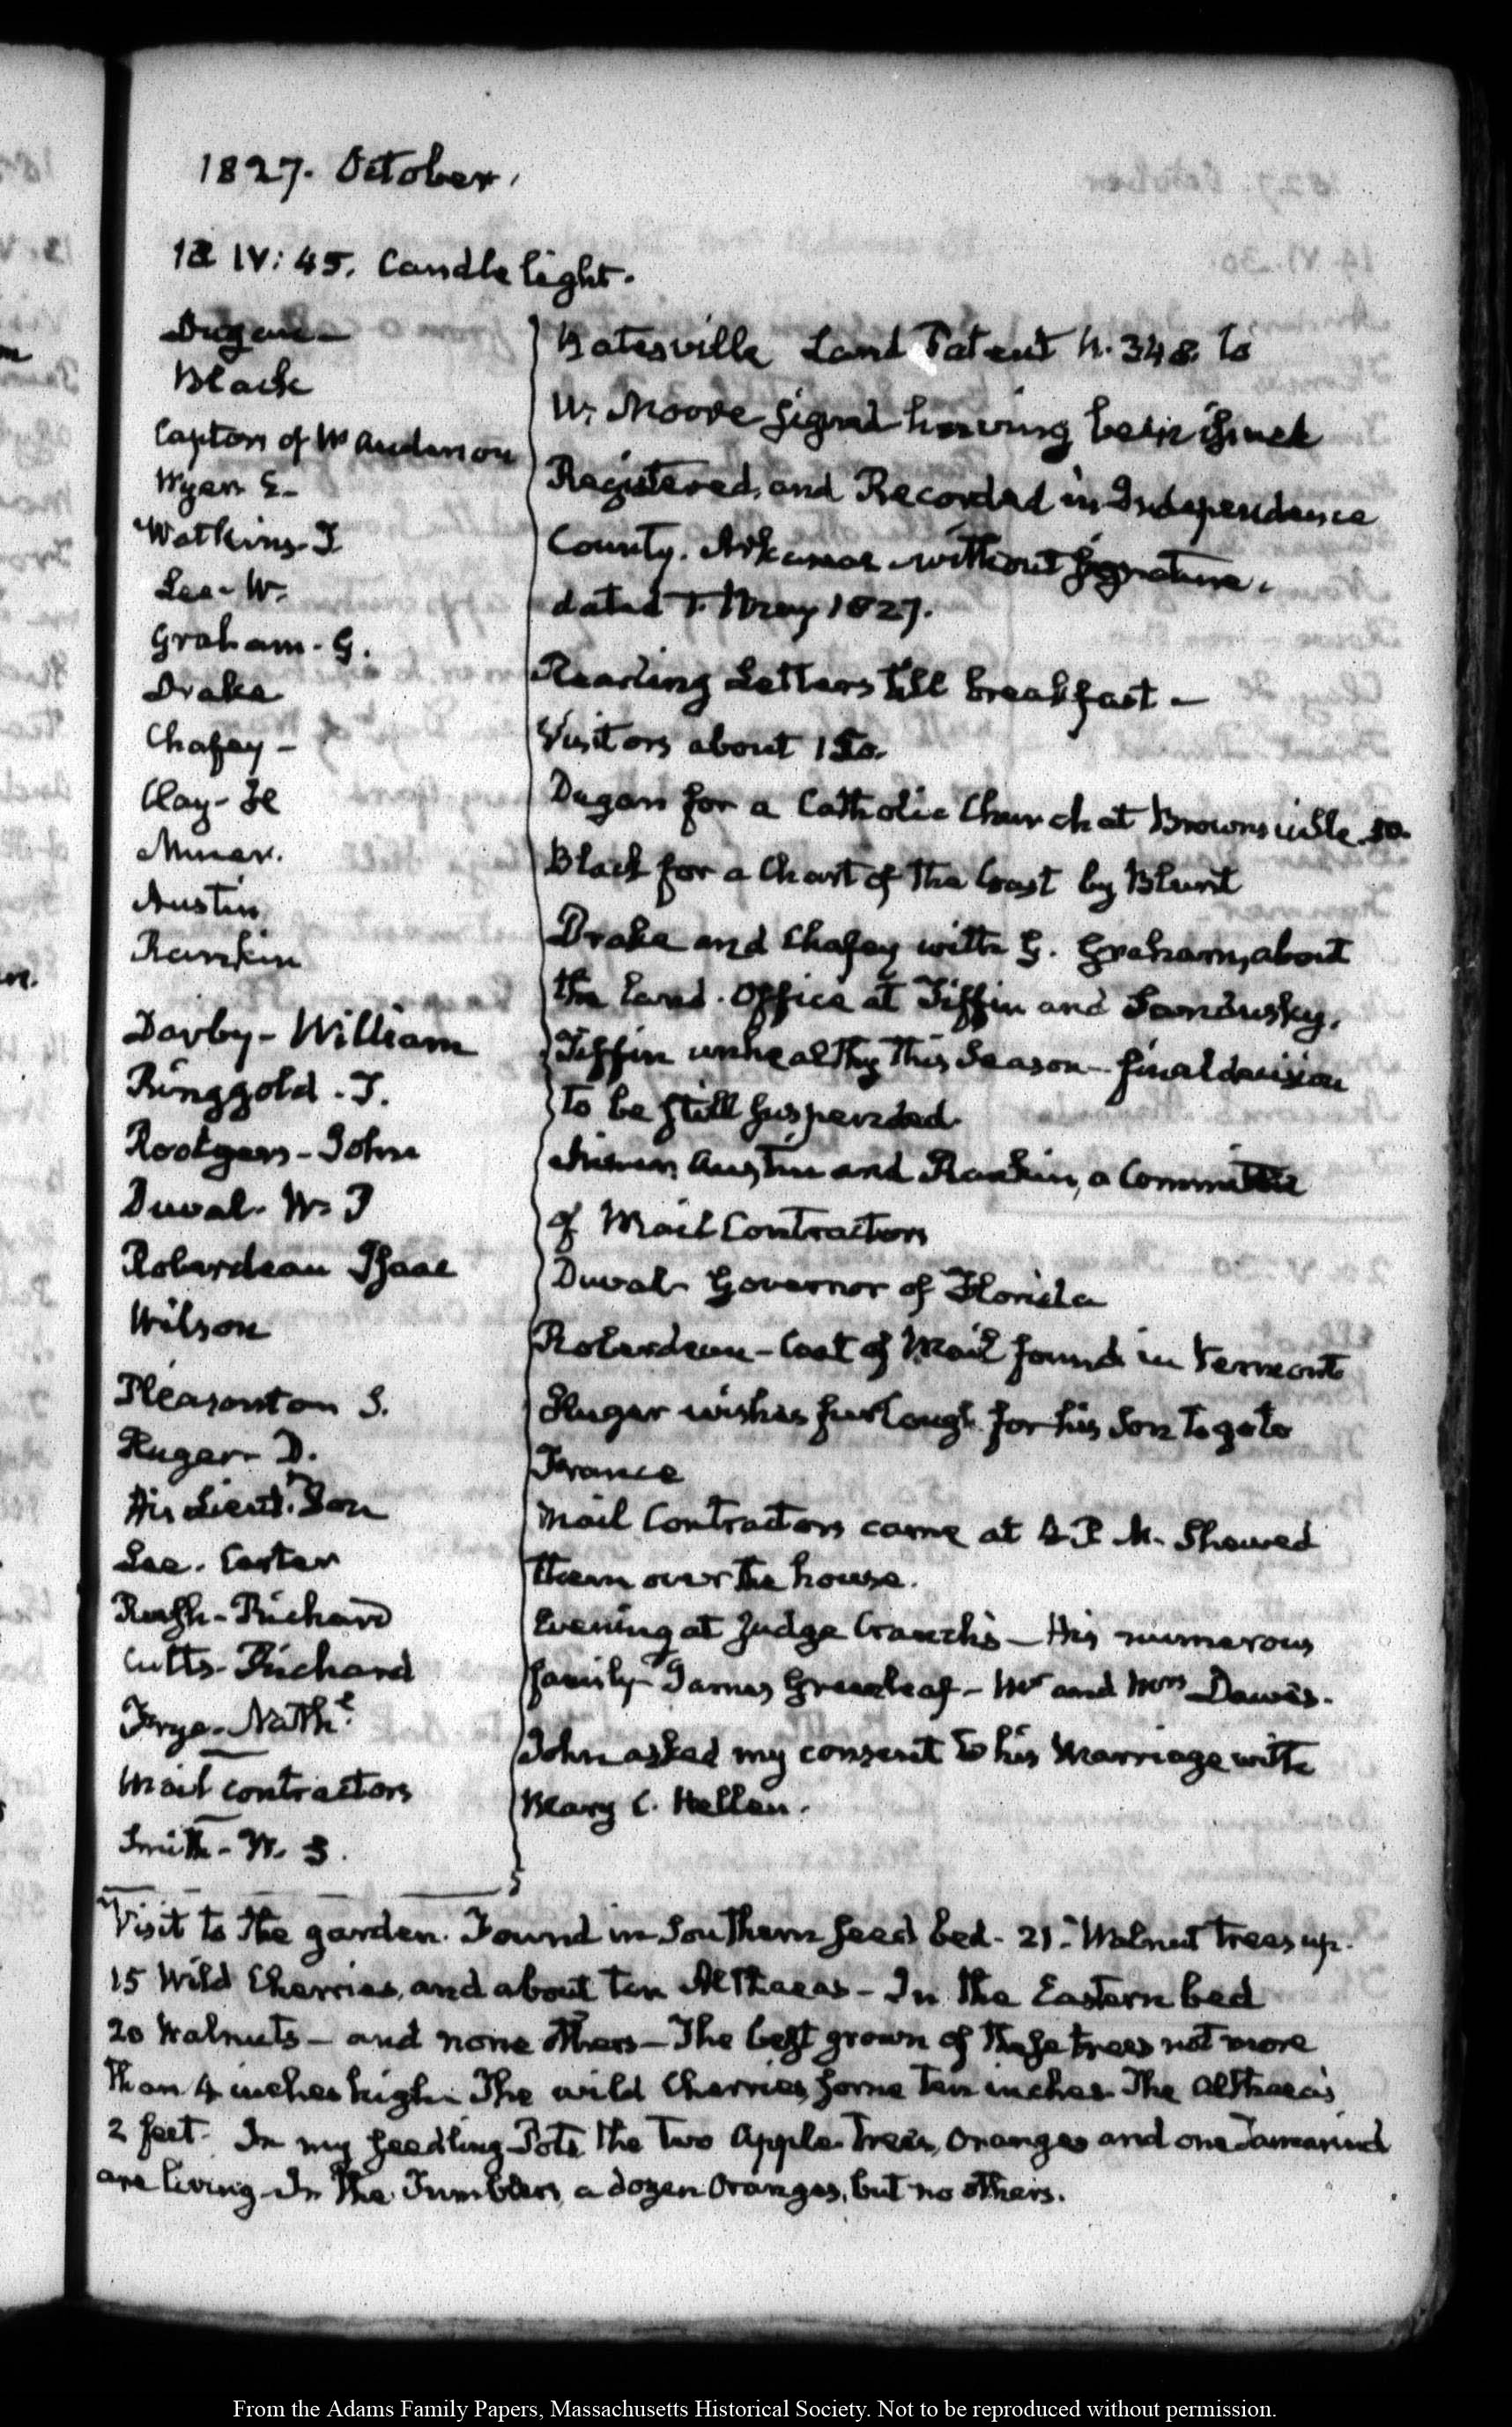 1827. October.
18 IV: 45. Candle light.
Dugan -
Black
Capton of Wm Anderson
Myers E.
Watkins T
Lee - W.
Graham - G.
Drake
Chafey -
Clay - H
Miner.
Austin
Rankin
Darby - William
Ringgold - T.
Rodgers - John
Duval - W. P
Roberdeau Isaac
Wilson
Pleasonton S.
Huger - D.
His Lieut. Son
Lee. Custer
Rush - Richard
Cutts - Richard
Frye - Nathl
Mail contractors
Smith - W. S.
Batesville Land Patent N. 348. to
W. Moore signed having been issued
Registered, and Recorded in Independence
County. Arkansas without signature.
dated 1. May 1827.
Reading Letters till breakfast -
Visitors about 150.
Dugan for a Catholic Church at Brownsville 50.
Black for a Chart of the Coast by Blunt
Drake and Chafey with G. Graham, about
the Land. Office at Tiffin and Sandusky.
Tiffin unhealthy this Season - final decision
to be still suspended.
Miner, Austin and Rankin, a Committee
of Mail Contractors
Duval - Governor of Florida
Roberdeau - Coat of Mail found in Vermont
Huger wishes furlough for his Son to go to
France
Mail Contractors came at 4 P. M. Showed
them over the house.
Evening at Judge Cranch's - His numerous
family - James Greenleaf - Mr and Mrs Dawes.
John asked my consent to his Marriage with
Mary C. Hellen.
Visit to the garden. Found in Southern seed bed - 21. Walnut trees up.
15 Wild Cherries, and about ten Althaeas - In the Eastern bed
20 Walnuts - and none others - The best grown of these trees not more
than 4 inches high. The wild Cherries some ten inches. The Althaea's
2 feet. In my seedling Pots the two Apple-trees, Oranges and one Tamarind
are living. In the Tumblers, a dozen Oranges, but no others.
From the Adams Family Papers, Massachusetts Historical Society. Not to be reproduced without permission.